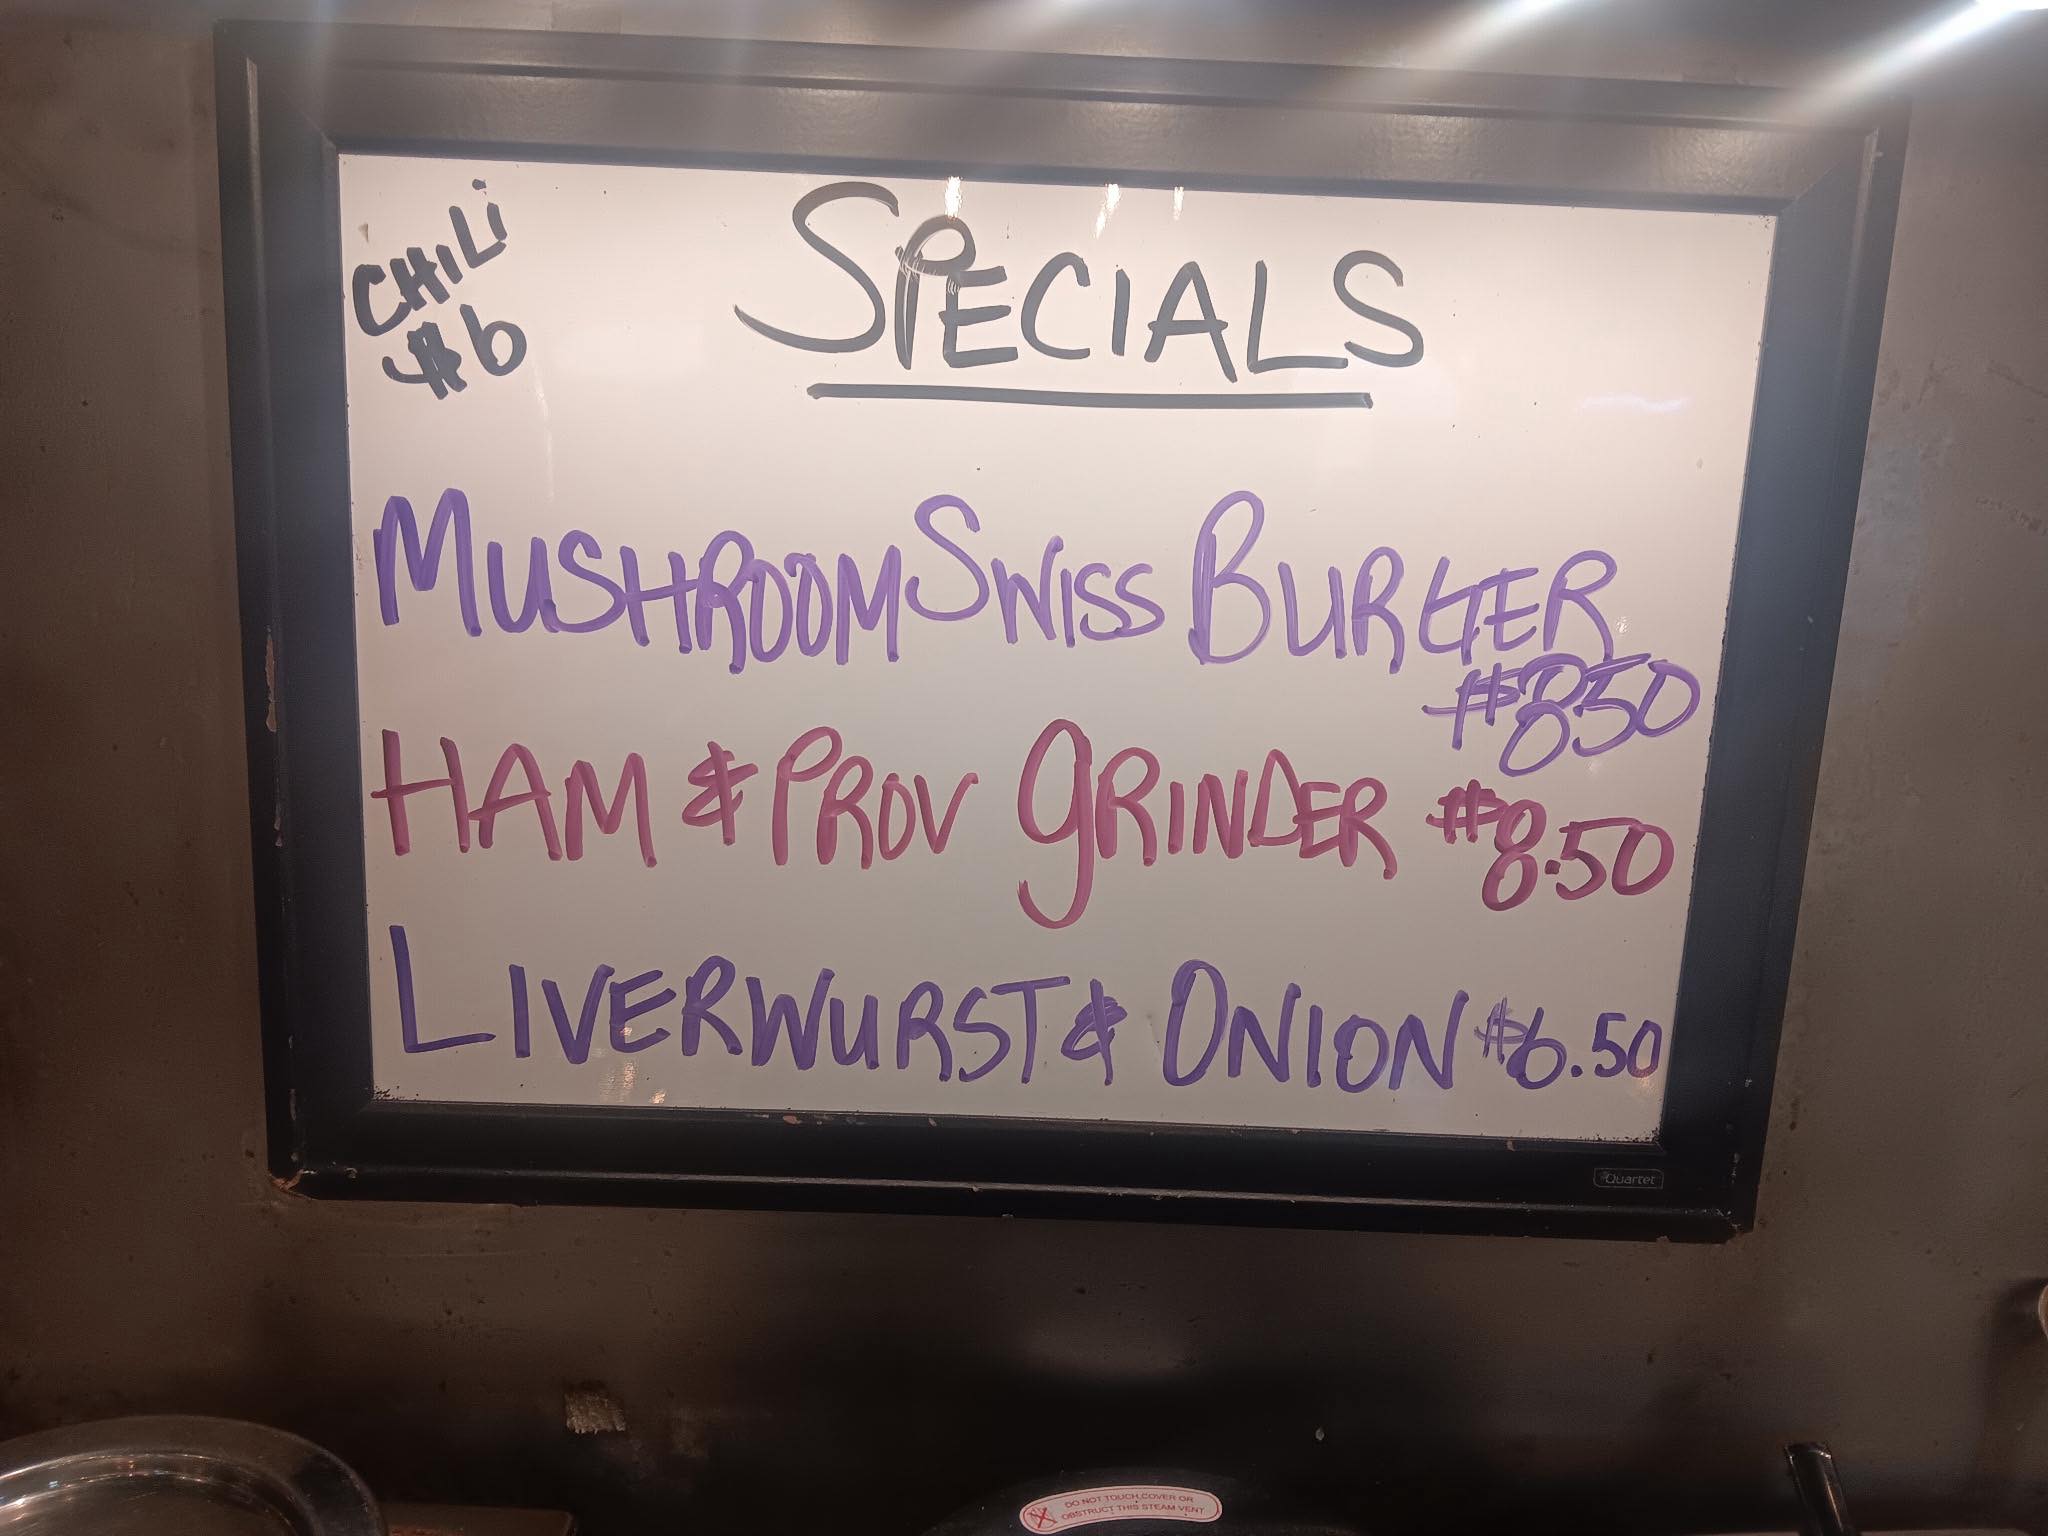 CHILI
$6
SPECIALS
MUSHROOM SWISS BURGER
$850
HAM & PROV GRINDER $8.50
LIVERWURST & ONION $6.50
Quartet
DO NOT TOUCH,COVER OR
OBSTRUCT THIS STEAM VENT